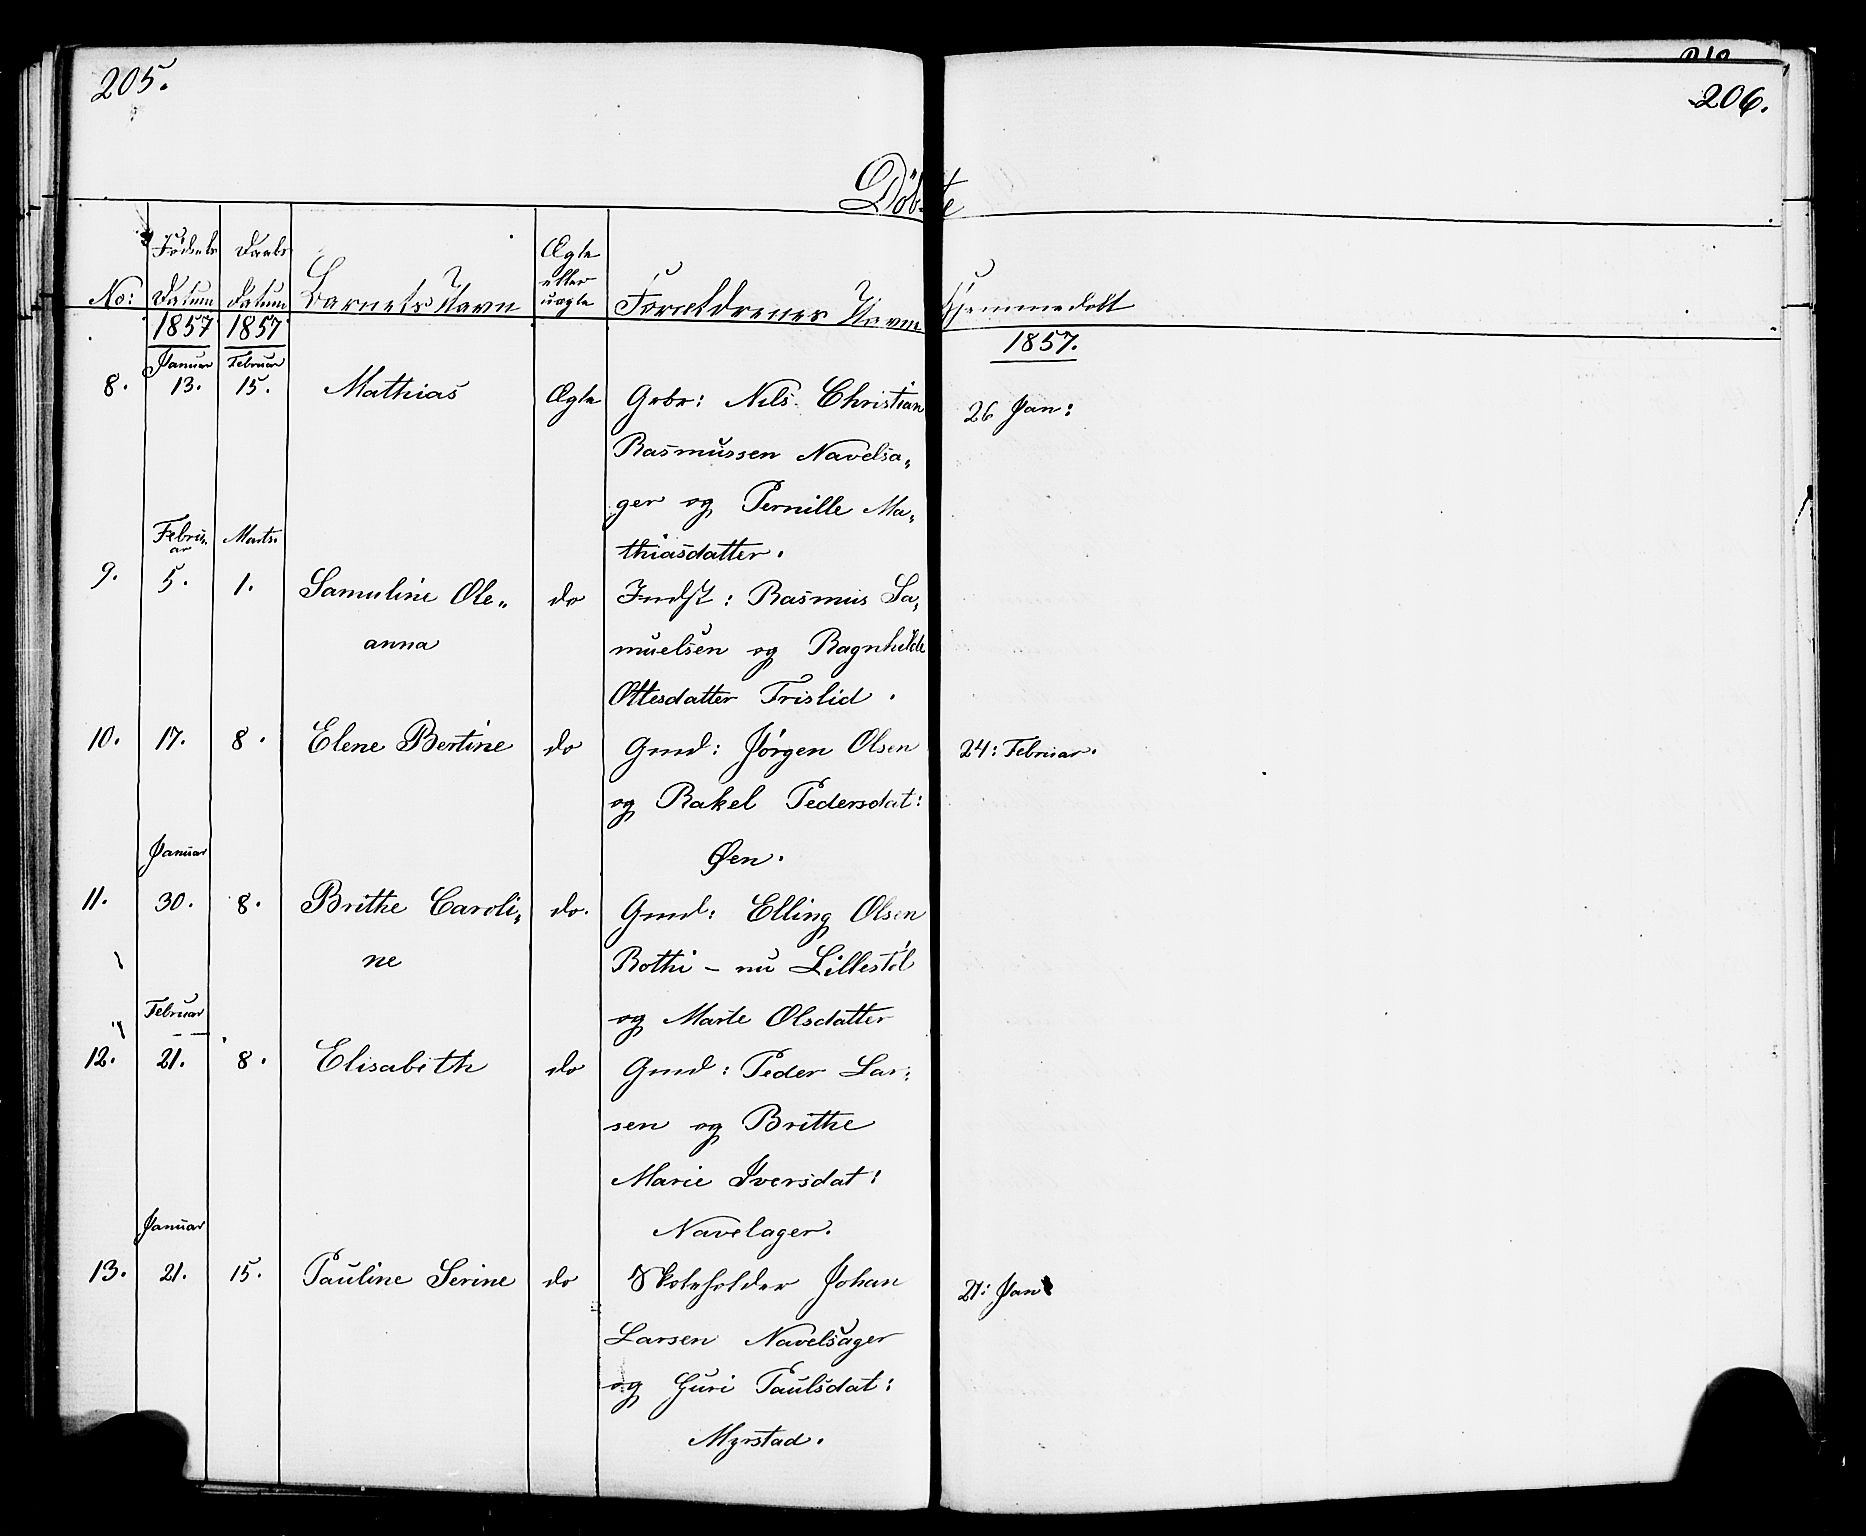 205.
206.
Döbte
No:
Födsels Datum
Daabs Datum
Barnets Navn
Ægte eller uægte
Forældrenes Navne
Hjemmedøbt
1857 1857 1857.
Januar Februar
8. 13. 15. Mathias Ægte Gbr: Nils Christian 26 Jan:
Rasmussen Navelsa„
ger og Pernille Ma„
thiasdatter.
Febru„
ar Marts.
9. 5. 1. Samuline Ole„ do Indst: Rasmus Sa„
anna muelsen og Ragnhilde
Ottesdatter Frislid.
10. 17. 8. Elene Bertine do Gmd: Jörgen Olsen 24: Februar.
og Rakel Pedersdat:
Januar Øen.
11. 30. 8. Brithe Caroli„ do. Gmd: Elling Olsen
ne Rothi – nu Lillestöl
Februar og Marte Olsdatter
12. 21. 8. Elisabeth do Gmd: Peder Lar„
sen og Brithe
Marie Iversdat:
Januar Navelager.
13. 21. 15. Pauline Serine do Skoleholder Johan 21: Jan
Larsen Navelsager
og Guri Paulsdat:
Myrstad.